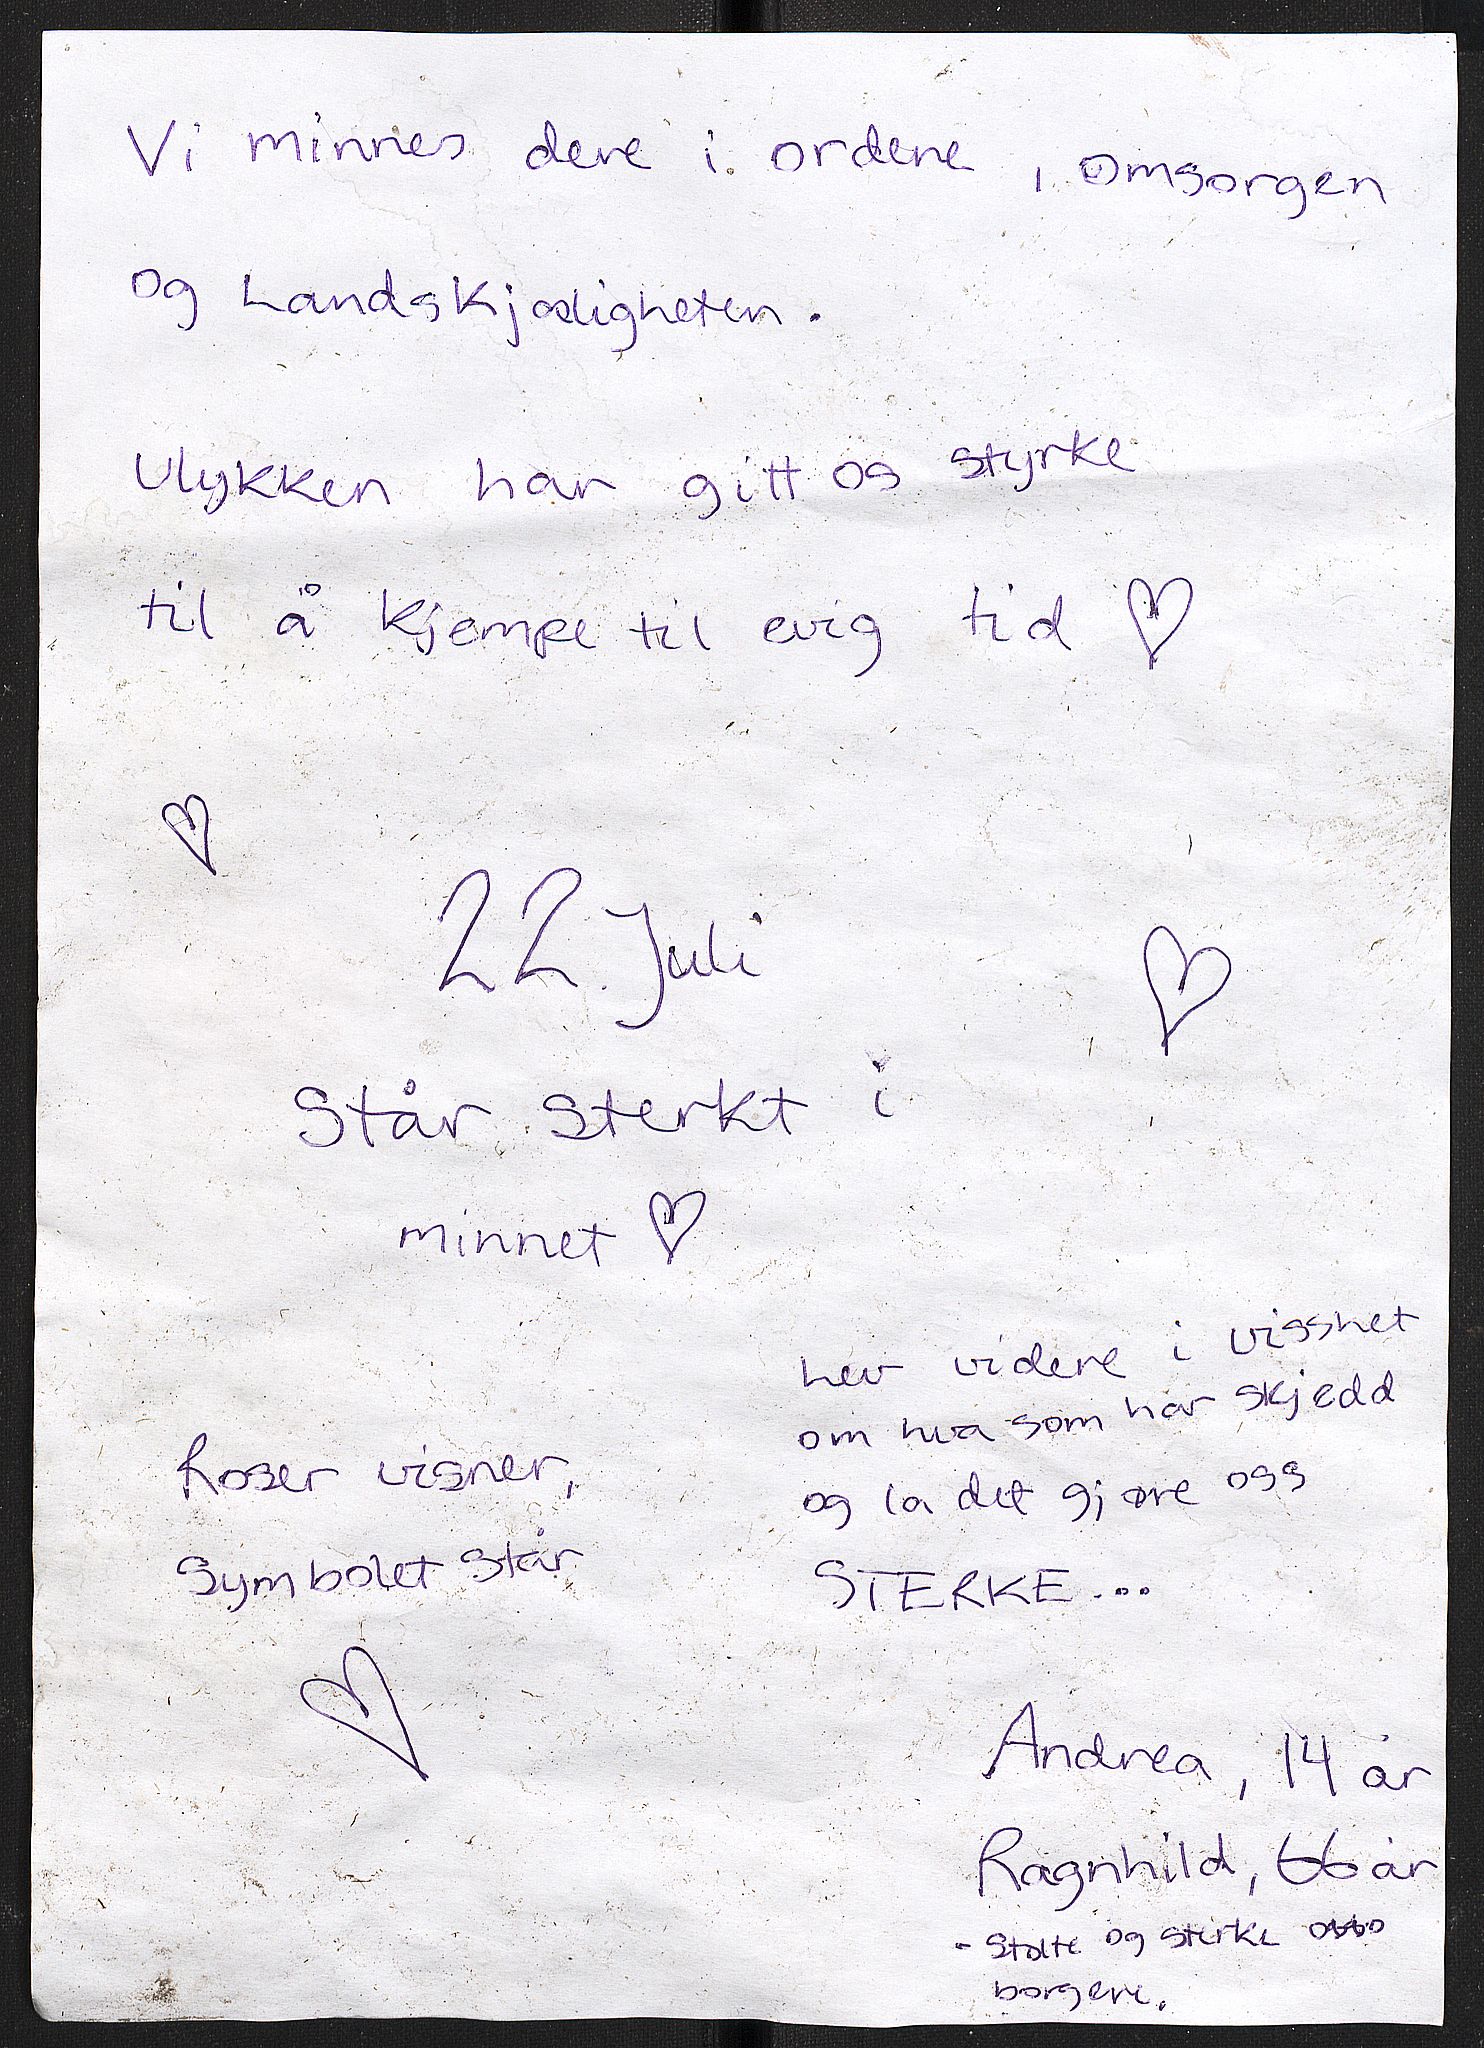 Vi minnes dere i ordene, omsorgen
og Landskjærligheten.
Ulykken har gitt os styrke
til å kjempe til evig tid ♡
♡
22. Juli
♡
Står sterkt i
minnet ♡
Roser visner,
Symbolet står
♡
Lev videre i visshet
om hva som har skjedd
og la det gjøre oss
STERKE...
Andrea, 14 år
Ragnhild, 66 år
- Stolte og sterke
borgere.